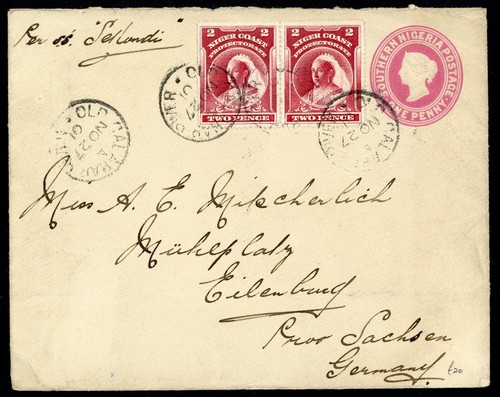 Per ss. "Sekondi"
2 2
NIGER COAST
PROTECTORATE
TWO PENCE
2 2
NIGER COAST
PROTECTORATE
TWO PENCE
SOUTHERN NIGERIA POSTAGE
ONE PENNY
OLD CALABAR
A
NO 27
01
OLD
NO 27
RIVER
CALABAR
NO 27
RIVER
Miss A. E. Mitscherlich
Mühlplatz
Eilenburg
Prov Sachsen
Germany.
£20